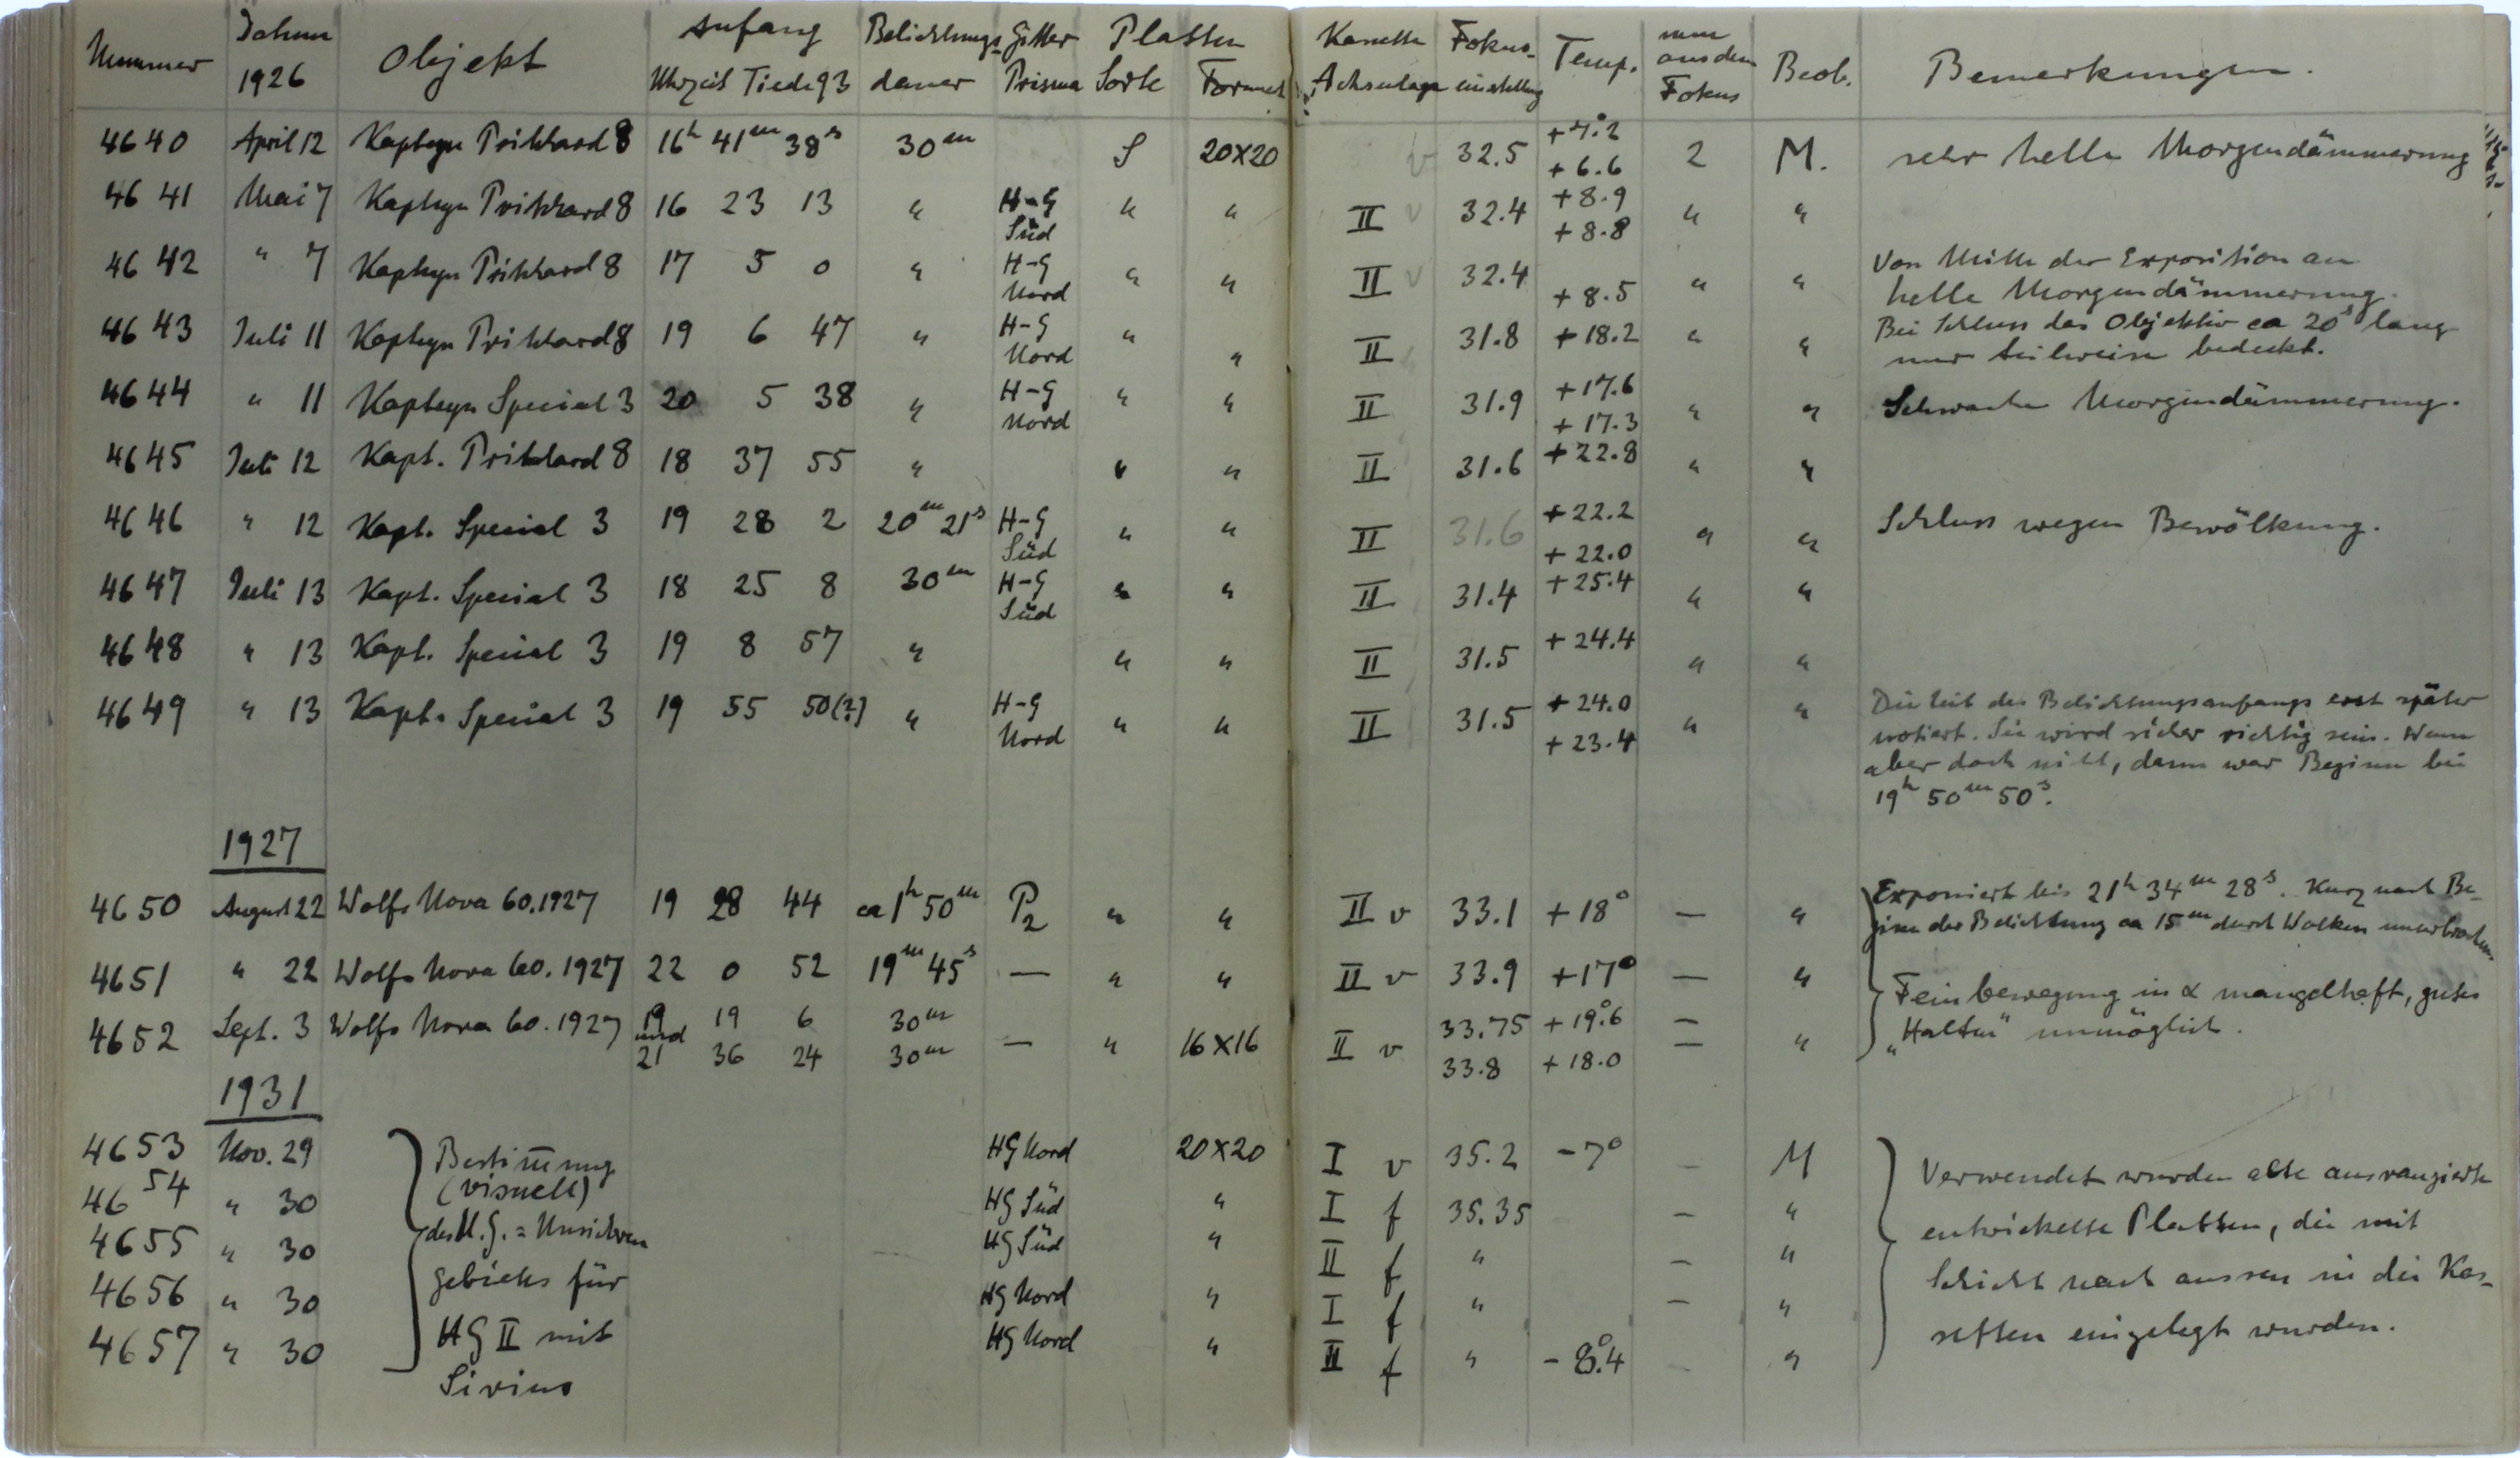 Nummer Datum 1926 Objekt Anfang Uhrzeit Tiede 93 Belichtungs-dauer Gitter Prisma Platten Sorte Format Kassette Achsenlage Fokus-einstellung Temp. mm aus dem Fokus Beob. Bemerkungen.
4640 April 12 Kapteyn Pritchard 8 16h 41m 38s 30m S 20×20 v 32.5 +7.°2 +6.6 2 M. sehr helle Morgendämmerung
4641 Mai 7 Kapteyn Pritchard 8 16 23 13 " H-G Süd " " II v 32.4 +8.9 +8.8 " "
4642 " 7 Kapteyn Pritchard 8 17 5 0 " H-G Nord " " II v 32.4 +8.5 " " Von Mitte der Exposition an
helle Morgendämmerung.
4643 Juli 11 Kapteyn Pritchard 8 19 6 47 " H-G Nord " " II 31.8 +18.2 " " Bei Schluss das Objektiv ca 20s lang
nur teilweise bedeckt.
4644 " 11 Kapteyn Special 3 20 5 38 " H-G Nord " " II 31.9 +17.6 +17.3 " " Schwache Morgendämmerung.
4645 Juli 12 Kapt. Pritchard 8 18 37 55 " " " II 31.6 +22.8 " "
4646 " 12 Kapt. Special 3 19 28 2 20m 21s H-G Süd " " II 31.6 +22.2 +22.0 " " Schluss wegen Bewölkung.
4647 Juli 13 Kapt. Special 3 18 25 8 30m H-G Süd " " II 31.4 +25.4 " "
4648 " 13 Kapt. Special 3 19 8 57 " " " II 31.5 +24.4 " "
4649 " 13 Kapt. Special 3 19 55 50(?) " H-G Nord " " II 31.5 +24.0 +23.4 " " Die Zeit des Belichtungsanfangs erst später
notiert. Sie wird sicher richtig sein. Wenn
aber doch nicht, dann war Beginn bei
19h 50m 50s.
1927
4650 August 22 Wolfs Nova 60.1927 19 28 44 ca 1h 50m P2 " " II v 33.1 +18° — " Exponiert bis 21h 34m 28s. Kurz nach Be-
ginn der Belichtung ca 15m durch Wolken unterbrochen.
4651 " 22 Wolfs Nova 60.1927 22 0 52 19m 45s — " " II v 33.9 +17° — " Feinbewegung in α mangelhaft, gutes
4652 Sept. 3 Wolfs Nova 60.1927 19 19 6 30m — " 16×16 II v 33.75 +19.°6 — " „Halten" unmöglich.
und 21 36 24 30m 33.8 +18.0 —
1931
4653 Nov. 29 Bestim̅ung HG Nord 20×20 I v 35.2 -7° — M Verwendet wurden alte ausrangierte
4654 " 30 (visuell) HG Süd " I f 35.35 — " entwickelte Platten, die mit
4655 " 30 des U.G. = Unsicheren HG Süd " II f " — " Schicht nach aussen in die Kas-
4656 " 30 gebiets für HG Nord " I f " — " setten eingelegt wurden.
4657 " 30 HG II mit HG Nord " II f " -8.°4 — "
Sirius